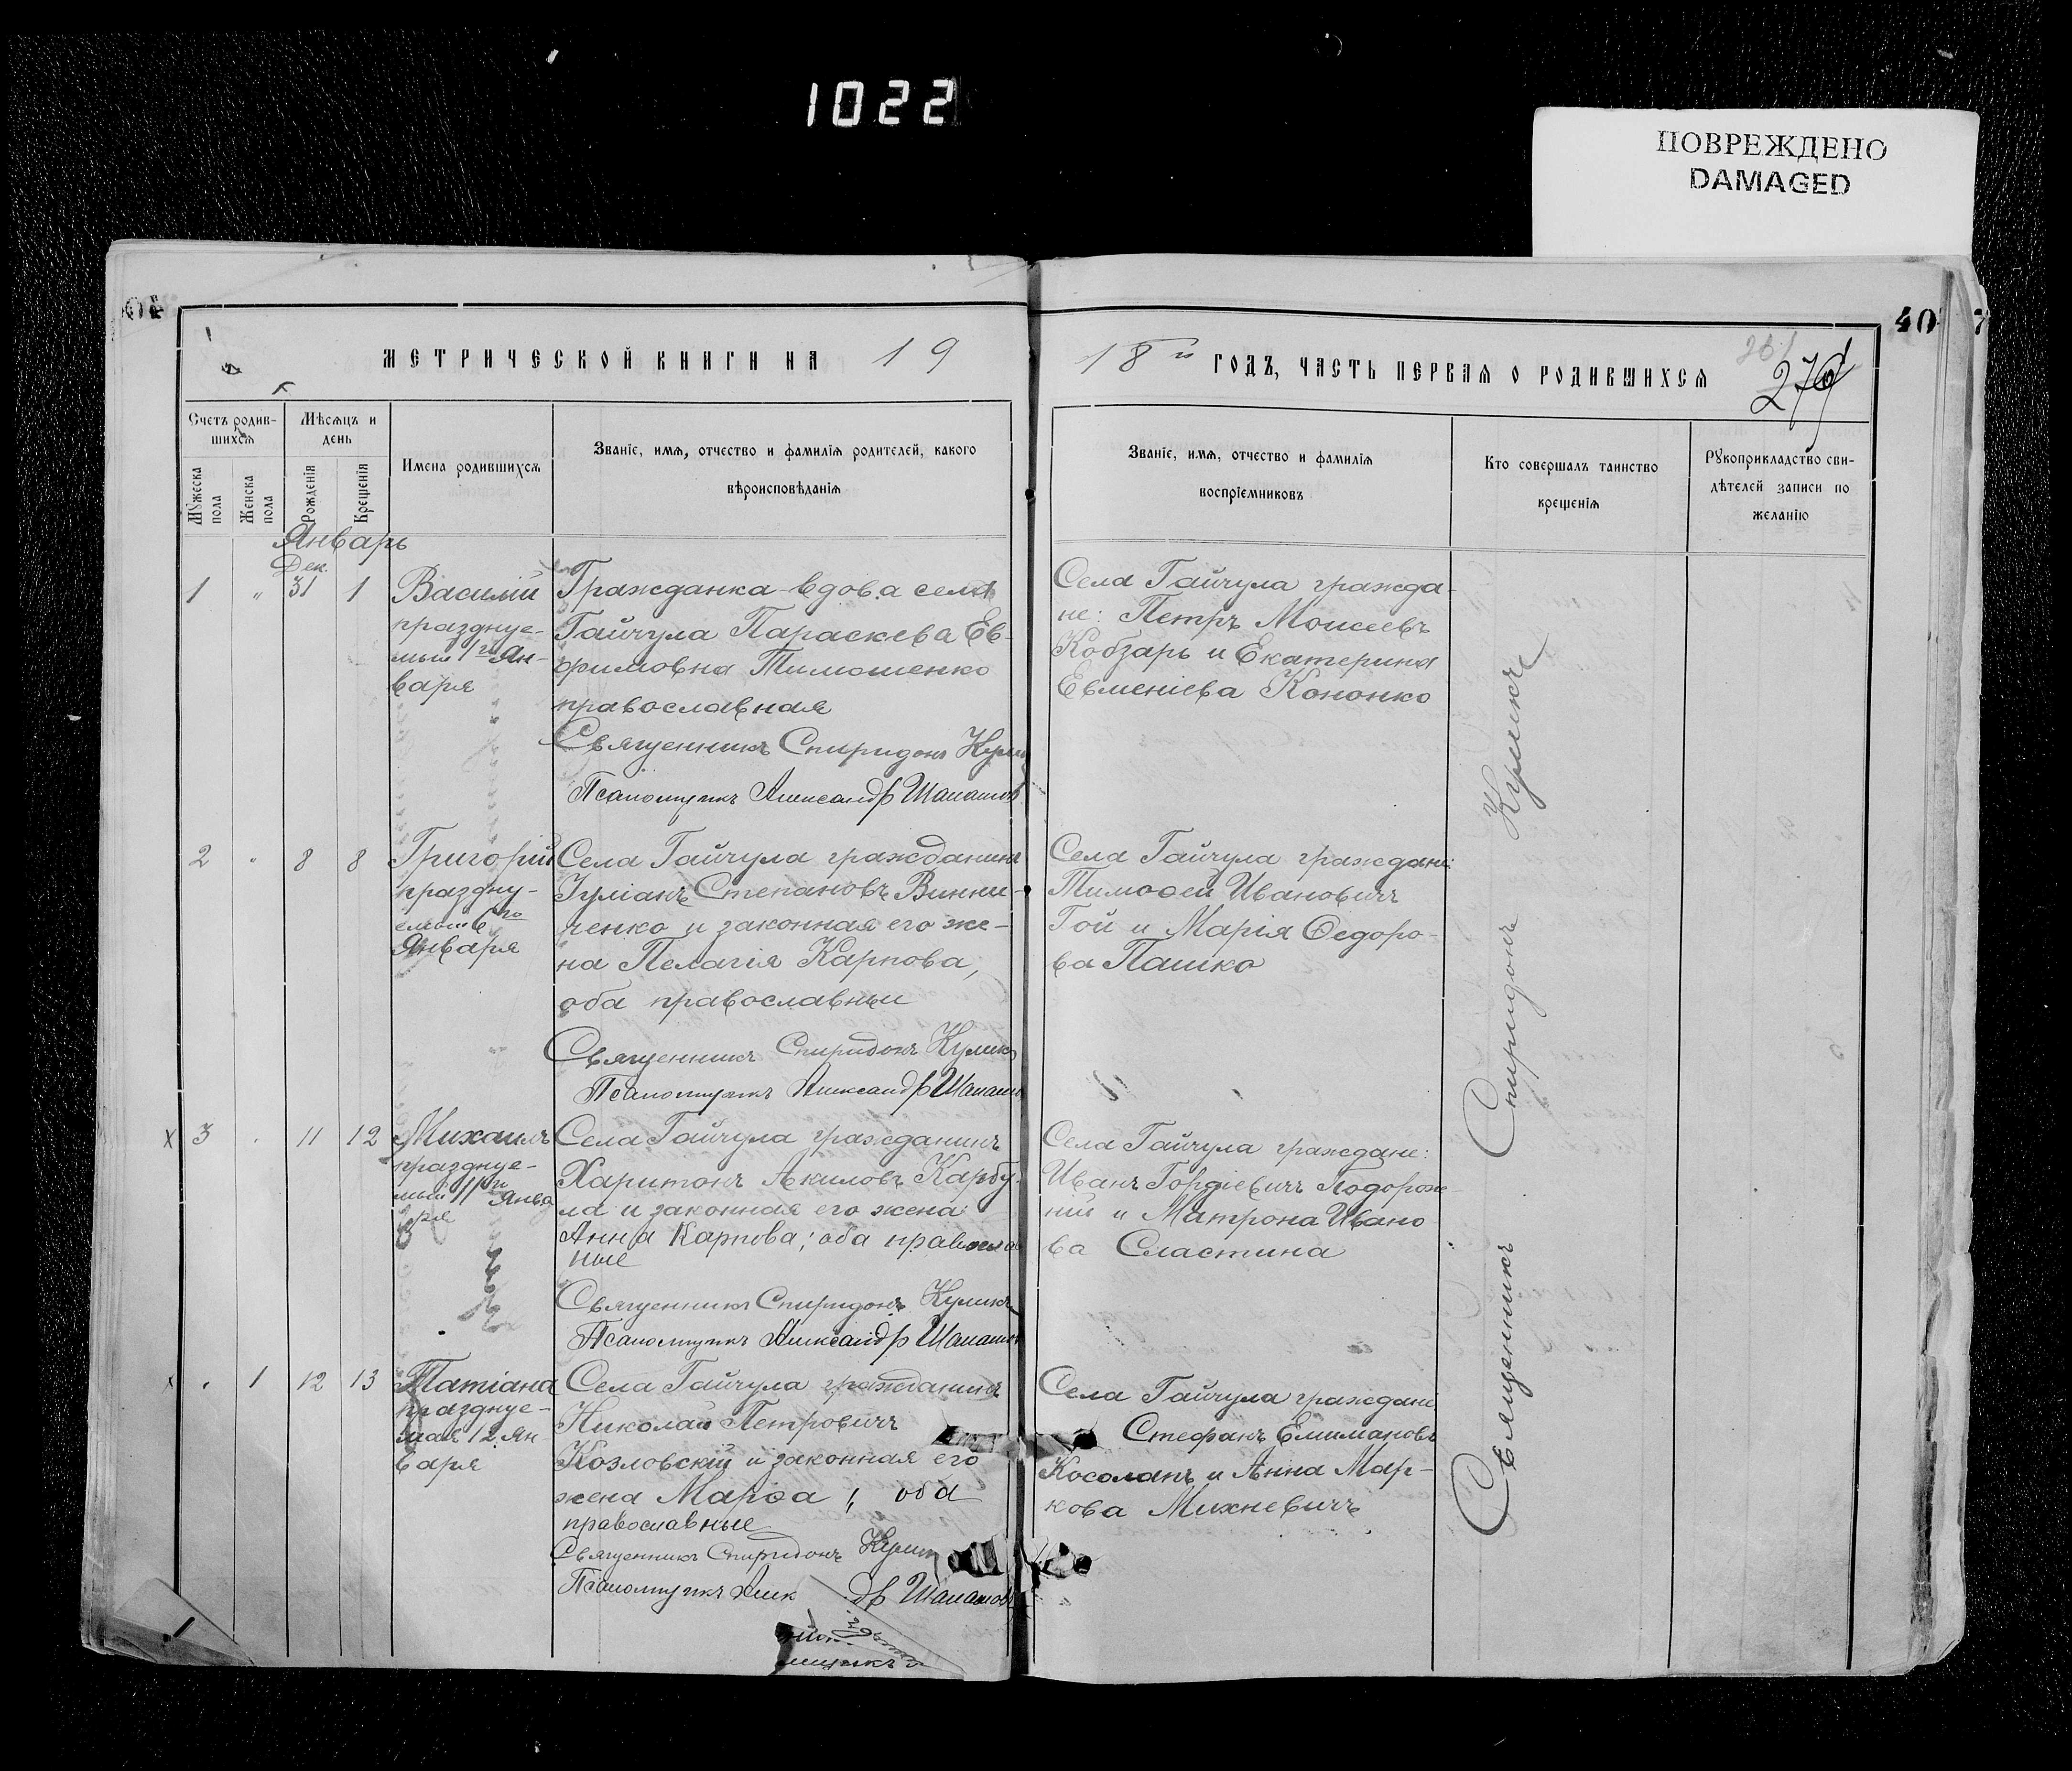 1022
ПОВРЕЖДЕНО
DAMAGED
40
МЕТРИЧЕСКОЙ КНИГИ НА 19
18го ГОДЪ, ЧАСТЬ ПЕРВАЯ О РОДИВШИХСЯ
Счетъ родив-
шихся
Мужеска пола
Женска пола
Мѣсяцъ и
день
Рожденія
Крещенія
Имена родившихся
Званіе, имя, отчество и фамилія родителей, какого
вѣроисповѣданія
Званіе, имя, отчество и фамилія
воспріемниковъ
Кто совершалъ таинство
крещенія
Рукоприкладство сви-
дѣтелей записи по
желанію
Январь
Дек.
1 " 31 1
Василій
празднуе-
мый 1го Ян-
варя
Гражданка вдова села
Гайчула Параскева Ев-
фимовна Тимошенко
православная
Священникъ Спиридонъ Кулик
Псаломщикъ Александр
Села Гайчула гражда-
не: Петръ Моисеевъ
Кобзарь и Екатерина
Евменіева Кононко
2 " 8 8
Григорій
праздну-
емый 6го
Января
Села Гайчула гражданинъ
Іуліанъ Степановъ Винни-
ченко и законная его же-
на Пелагія Карпова,
оба православныи
Священникъ Спиридонъ Куликъ
Псаломщикъ Александр
Села Гайчула граждане:
Тимофей Ивановичъ
Гой и Марія Ѳедоро-
ва Пашко
х 3 " 11 12
Михаилъ
празднуе-
мый 11го Янва
ря
Села Гайчула гражданинъ
Харитонъ Акиловъ Карбу-
ла и законная его жена
Анна Карпова; оба православ
ные
Священникъ Спиридонъ Куликъ
Псаломщикъ Александр
Села Гайчула граждане:
Иванъ Гордіевичъ Подорож-
ній и Матрона Ивано
ва Сластина
х " 1 12 13
Татіана
празднуе-
мая 12 Ян
варя
Села Гайчула гражданинъ
Николай Петровичъ
Козловскій и законная его
жена Марѳа, оба
православные
Священникъ Спиридонъ Кулик
Псаломщикъ Алек др
Села Гайчула граждане
Стефанъ
Косоланъ и Анна Мар-
кова Михневичъ
Священникъ Спиридонъ Куликъ